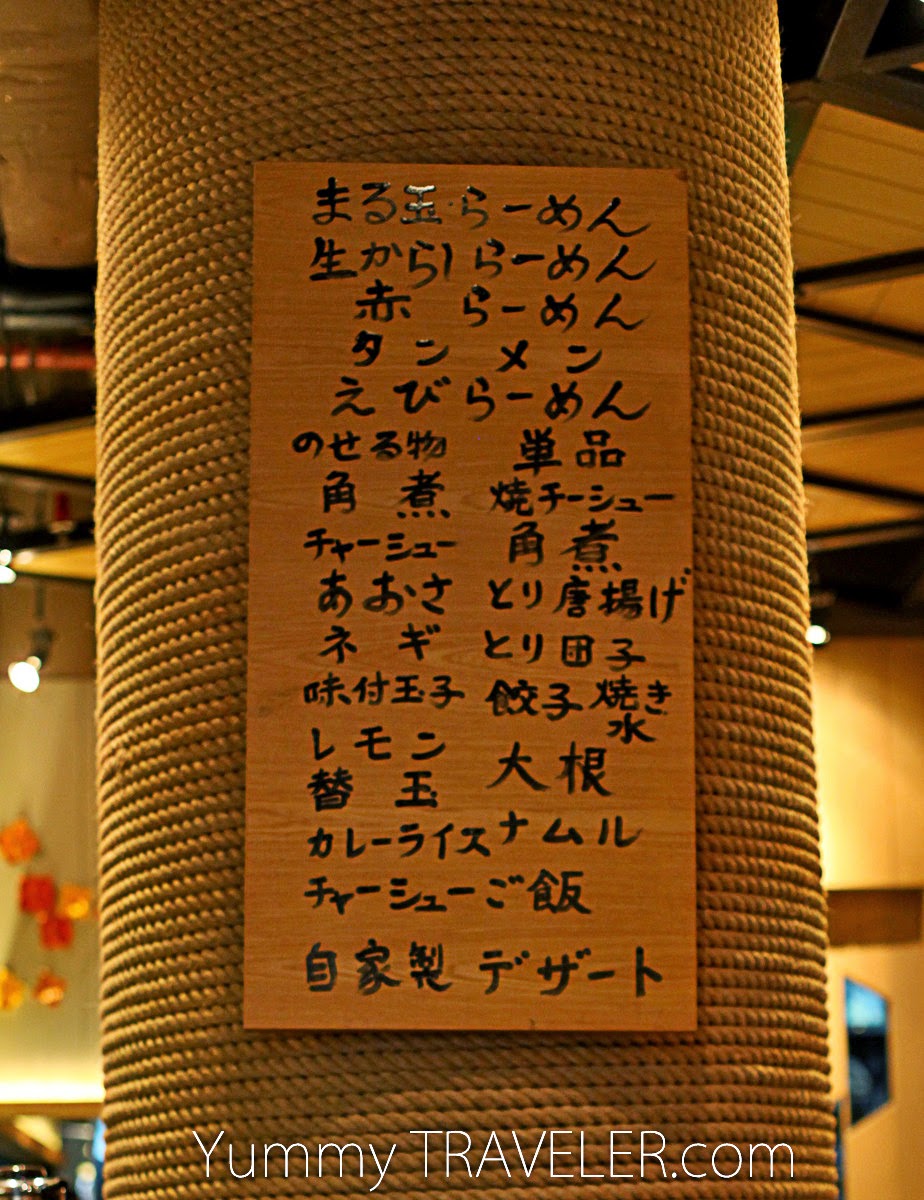 まる玉らーめん
生からしらーめん
赤 らーめん
タンメン
えびらーめん
のせる物 単品
角煮 焼チーシュー
チャーシュー 角煮
あおさ とり唐揚げ
ネギ とり団子
味付玉子 餃子焼き
水
レモン 大根
替玉
カレーライス ナムル
チャーシューご飯
自家製デザート
Yummy TRAVELER.com